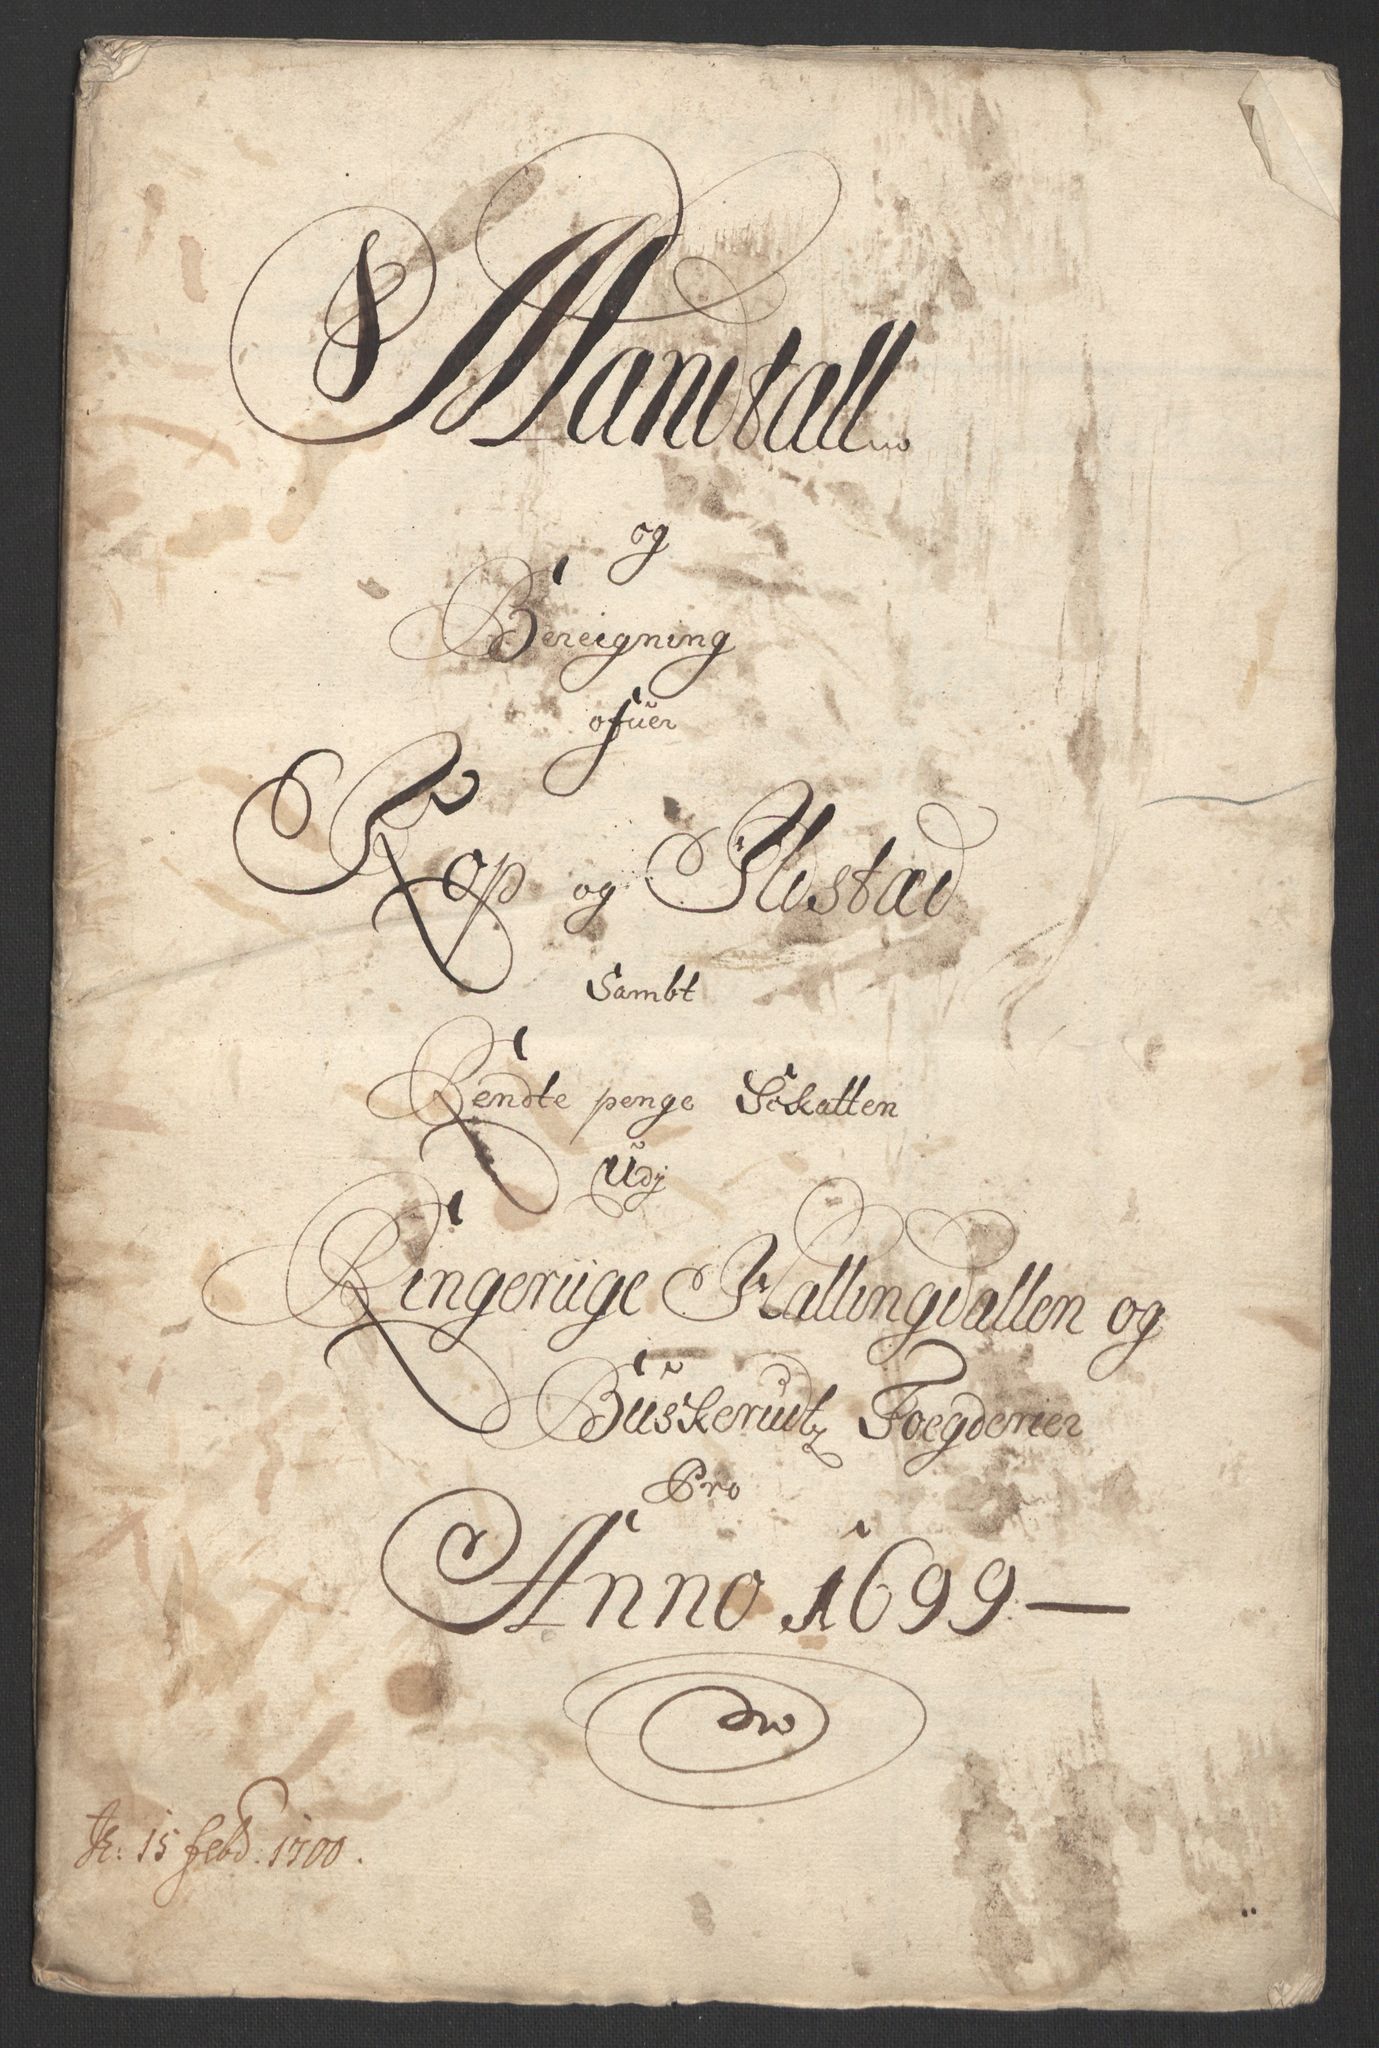 Mandtall
og
Bereigning
ofüer
Kop og Ildstæd
Sambt
Rendte penge Skatten
Udj
Ringeriige Hallingdallen og
Büskerudtz Foegderier
Pro
Anno 1699 —
15 febr. 1700.